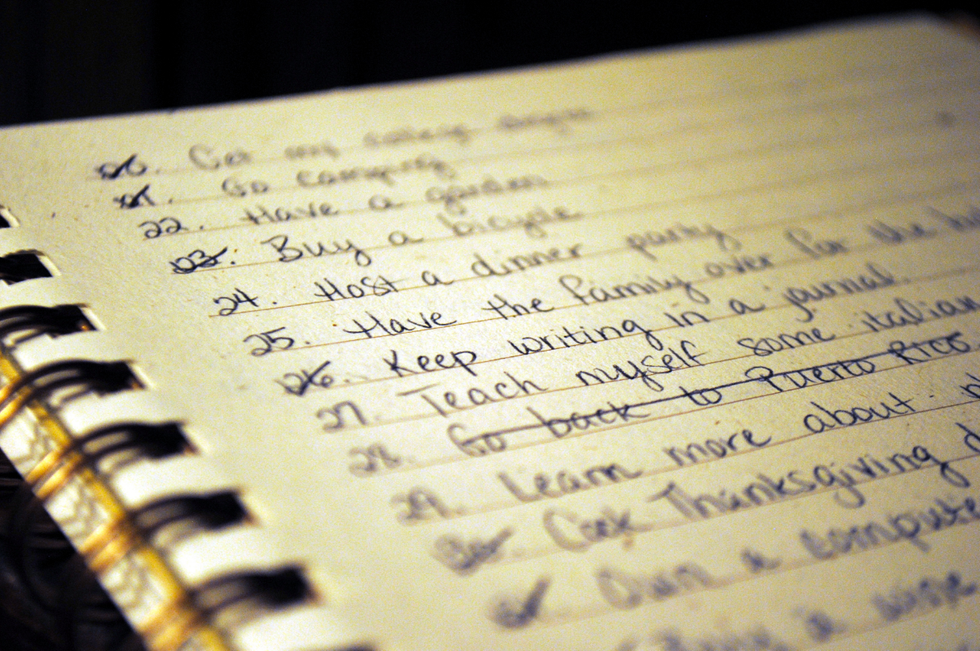 20. Get my college degree
21. Go camping
22. Have a garden
23. Buy a bicycle
24. Host a dinner party
25. Have the family over for the
26. Keep writing in a journal.
27. Teach myself some italian
28. Go back to Puerto Rico.
29. Learn more about
30. Cook Thanksgiving
Own a
a